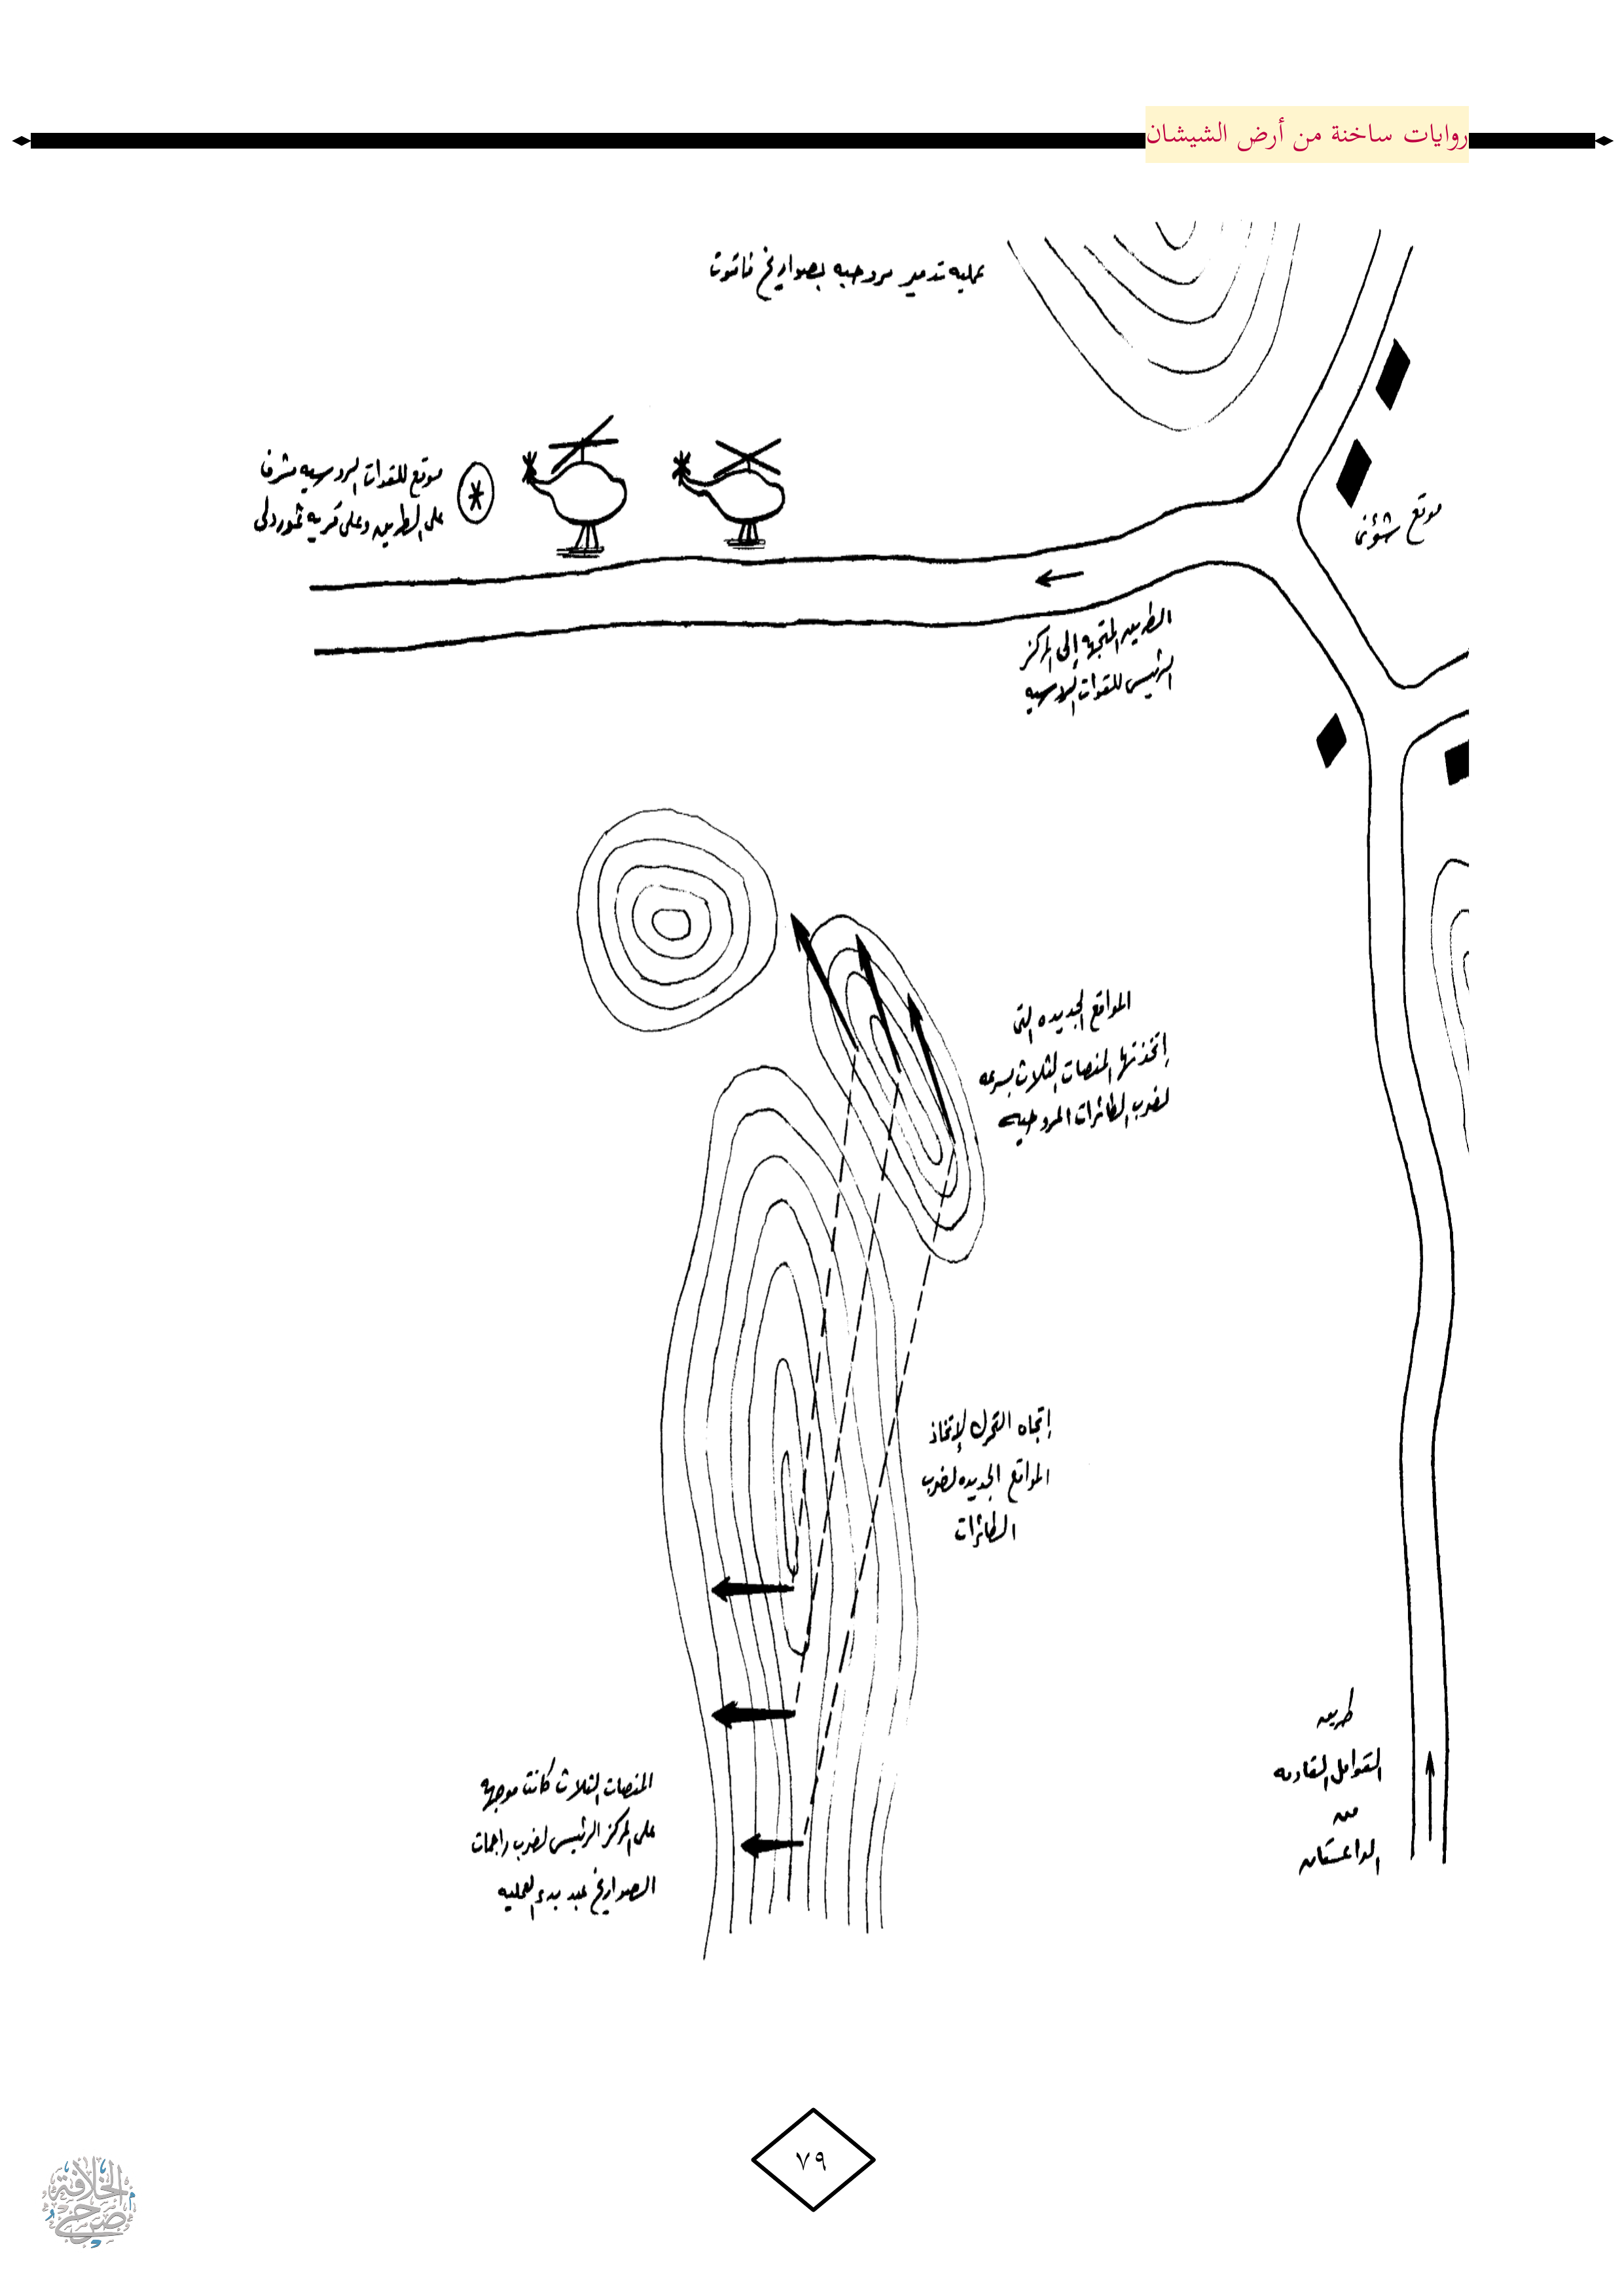 روايات ساخنة من أرض الشيشان
عمليه تدمير مروحيه بصواريخ فاقوت
موقع للقوات الروسيه مشرف
على الطريق وعلى قريه
موقع
الطريق المتجهه إلى المركز
الرئيس للقوات الروسيه
المواقع الجديده التى
إتخذتها المنصات الثلاث بسرعه
لضرب الطائرات المروحيه
إتجاه التحرك لإتخاذ
المواقع الجديده لضرب
الطائرات
المنصات الثلاث كانت موجهه
على المركز الرئيس لضرب راجمات
الصواريخ عند بدء العمليه
طريق
القوافل القادمه
من
الداغستان
٧٩